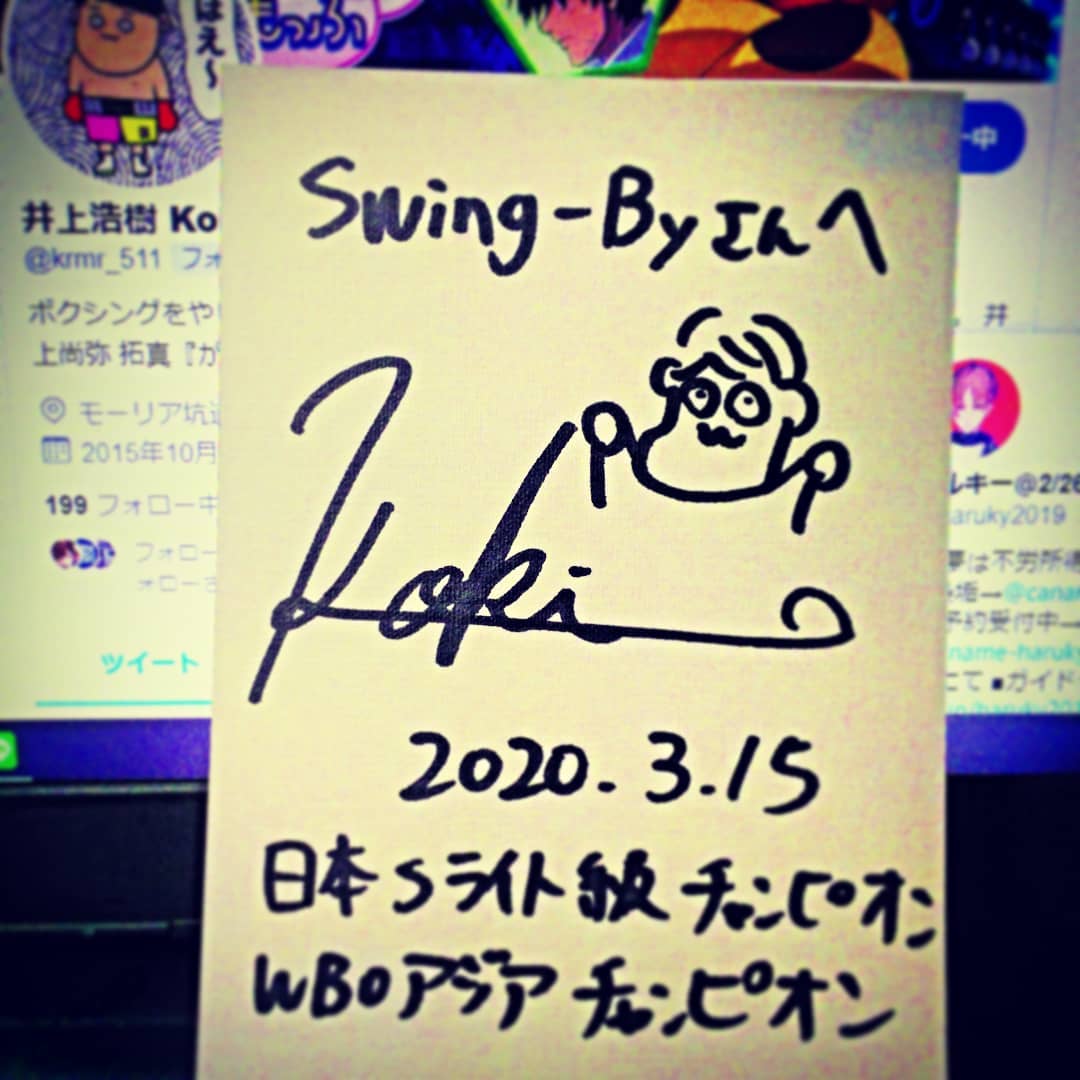 はえ〜
中
井上浩樹 Ko
@krmr_511 フォ
ボクシングをや
上尚弥 拓真『が
井
モーリア坑道
2015年10月
199 フォロー中
フォロー
ォローさ
ツイート
Swing-By さんへ
Koki
2020.3.15
日本Sライト級 チャンピオン
WBOアジア チャンピオン
ルキー@2/26
aruky2019
夢は不労所得
@canar
予約受付中
name-haruky
にて ■ガイド